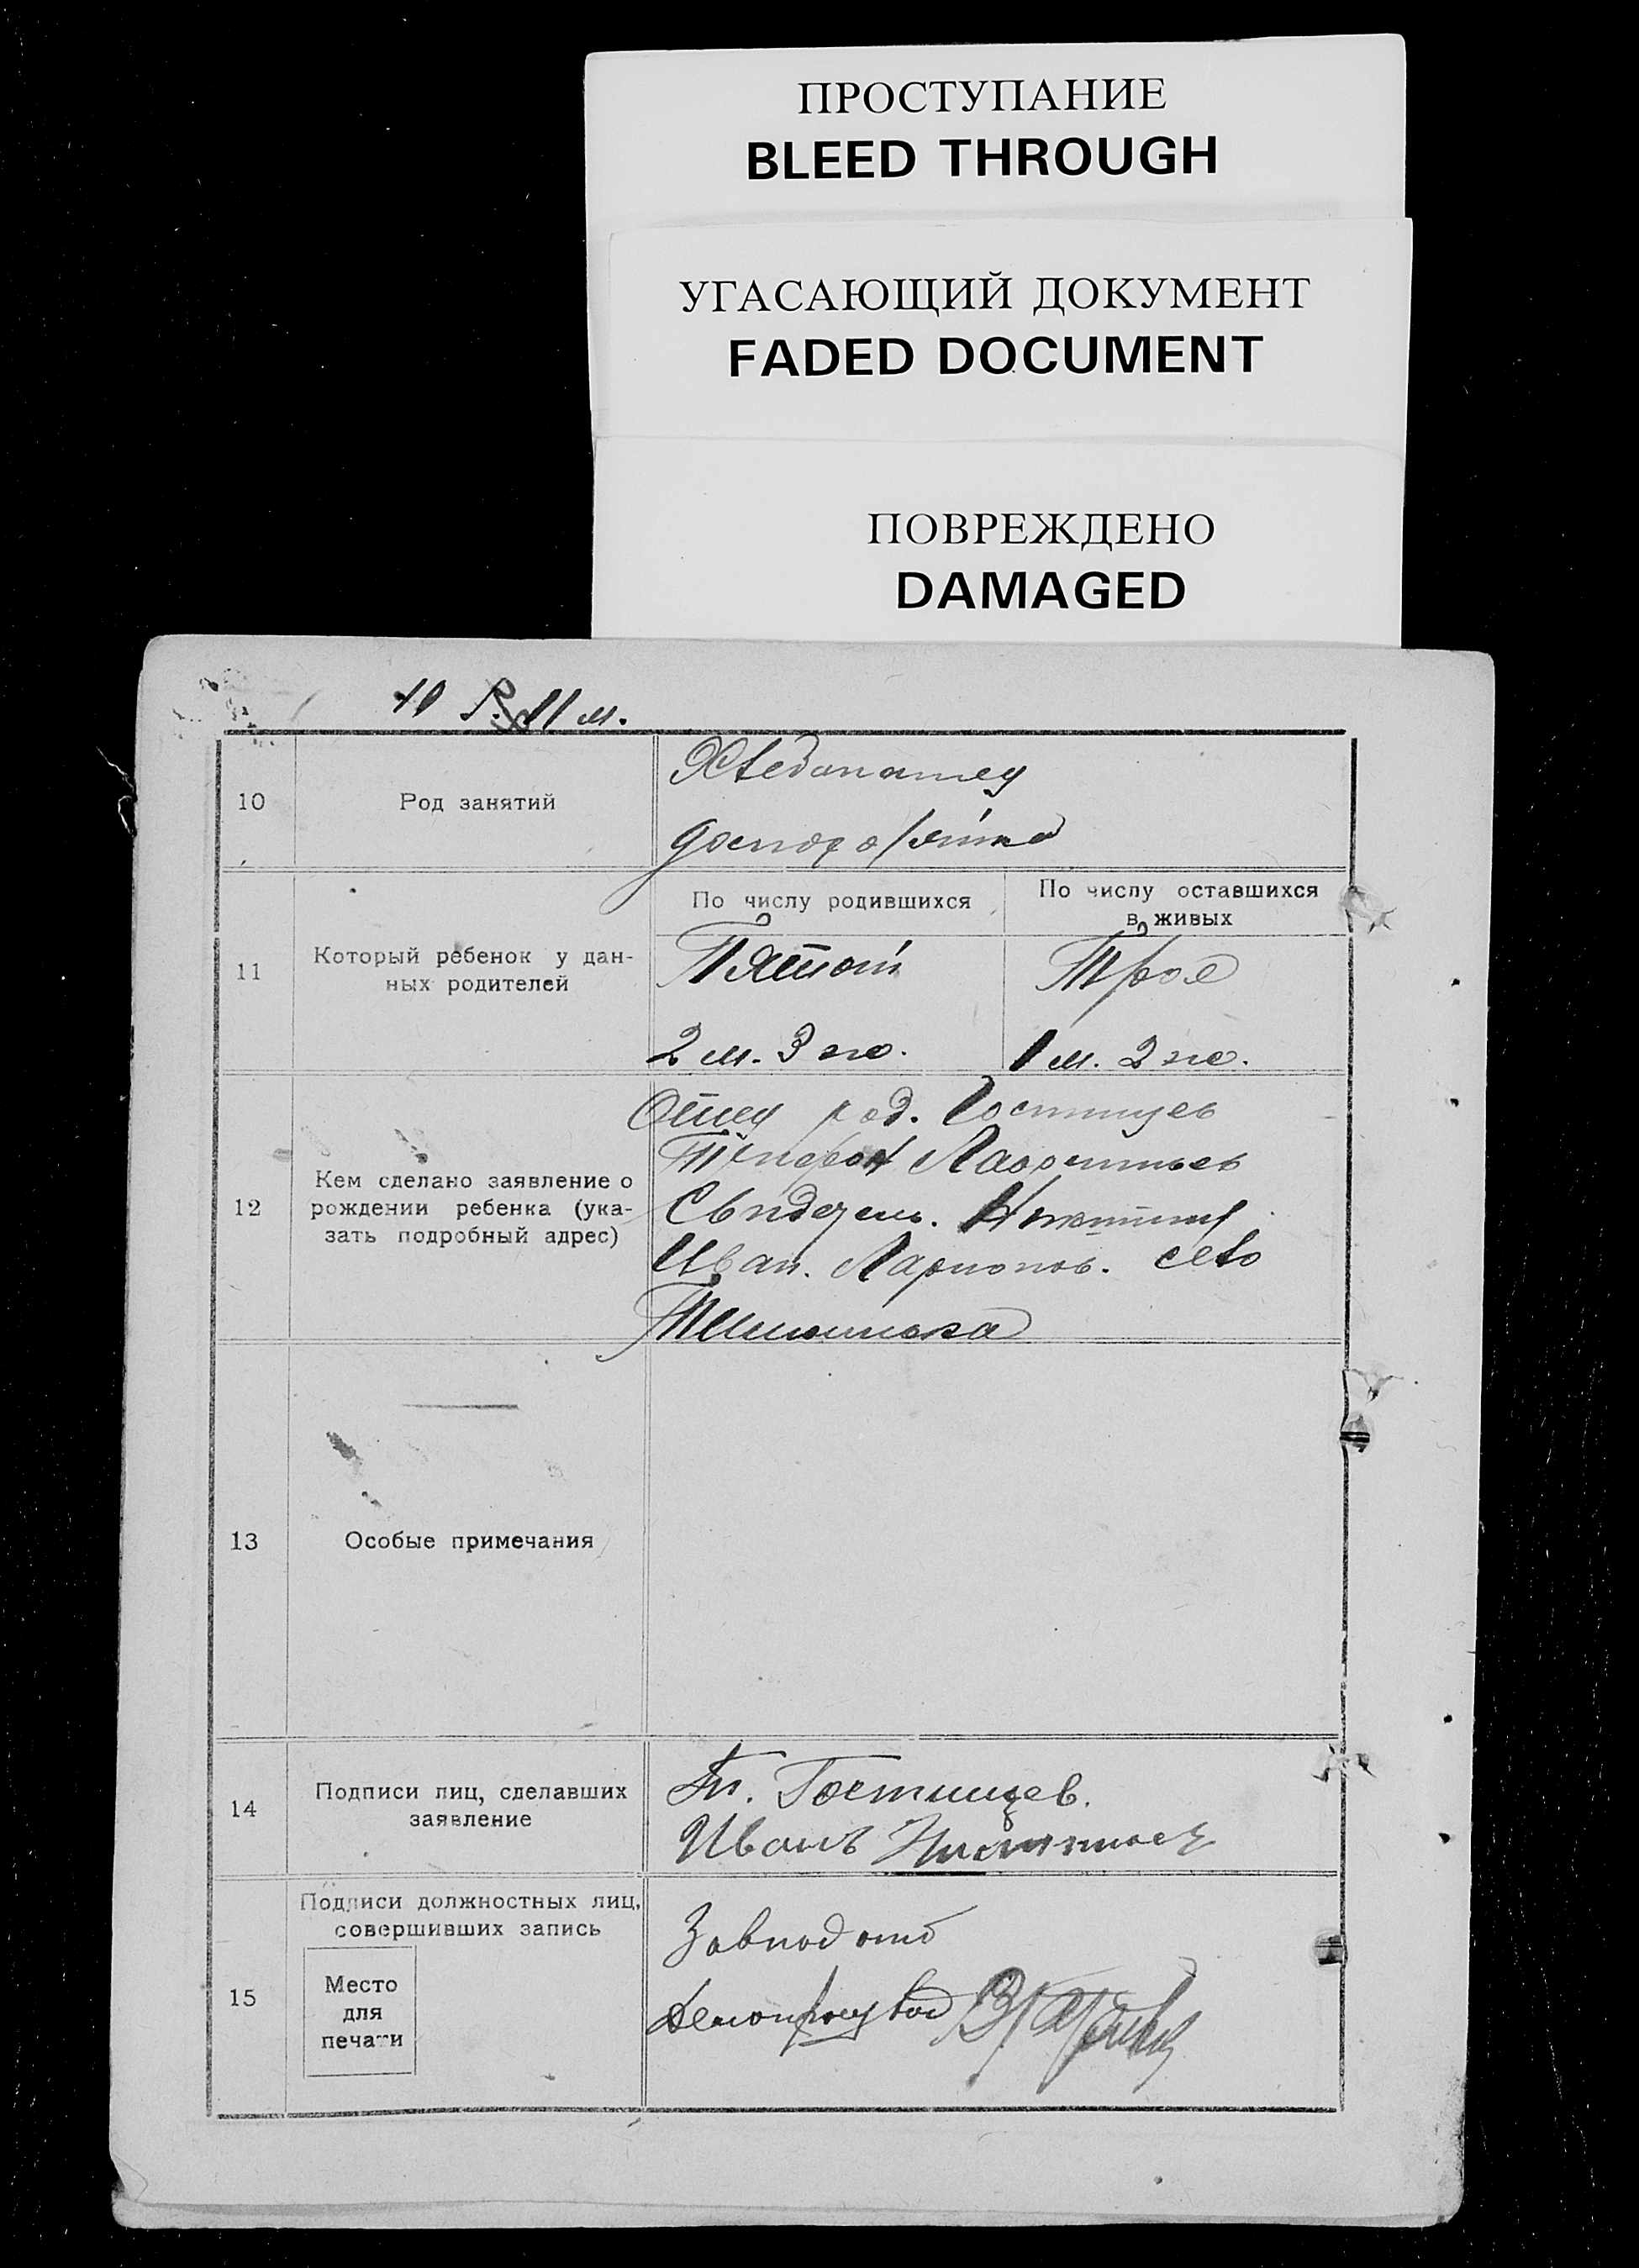 ПРОСТУПАНИЕ
BLEED THROUGH
УГАСАЮЩИЙ ДОКУМЕНТ
FADED DOCUMENT
ПОВРЕЖДЕНО
DAMAGED
10
Род занятий
Хлебопашец
11
Который ребенок у дан-
ных родителей
По числу родившихся
По числу оставшихся
в живых
Пятой
Трое
2 м. 3 ж.
1 м. 2 ж.
12
Кем сделано заявление о
рождении ребенка (ука-
зать подробный адрес)
Отец род. Гостищев
Свидетель.
Иван. Ларионов. село
13
Особые примечания
14
Подписи лиц, сделавших
заявление
Гостищев.
Иванъ
15
Подписи должностных лиц,
совершивших запись
Место
для
печати
Завподотд